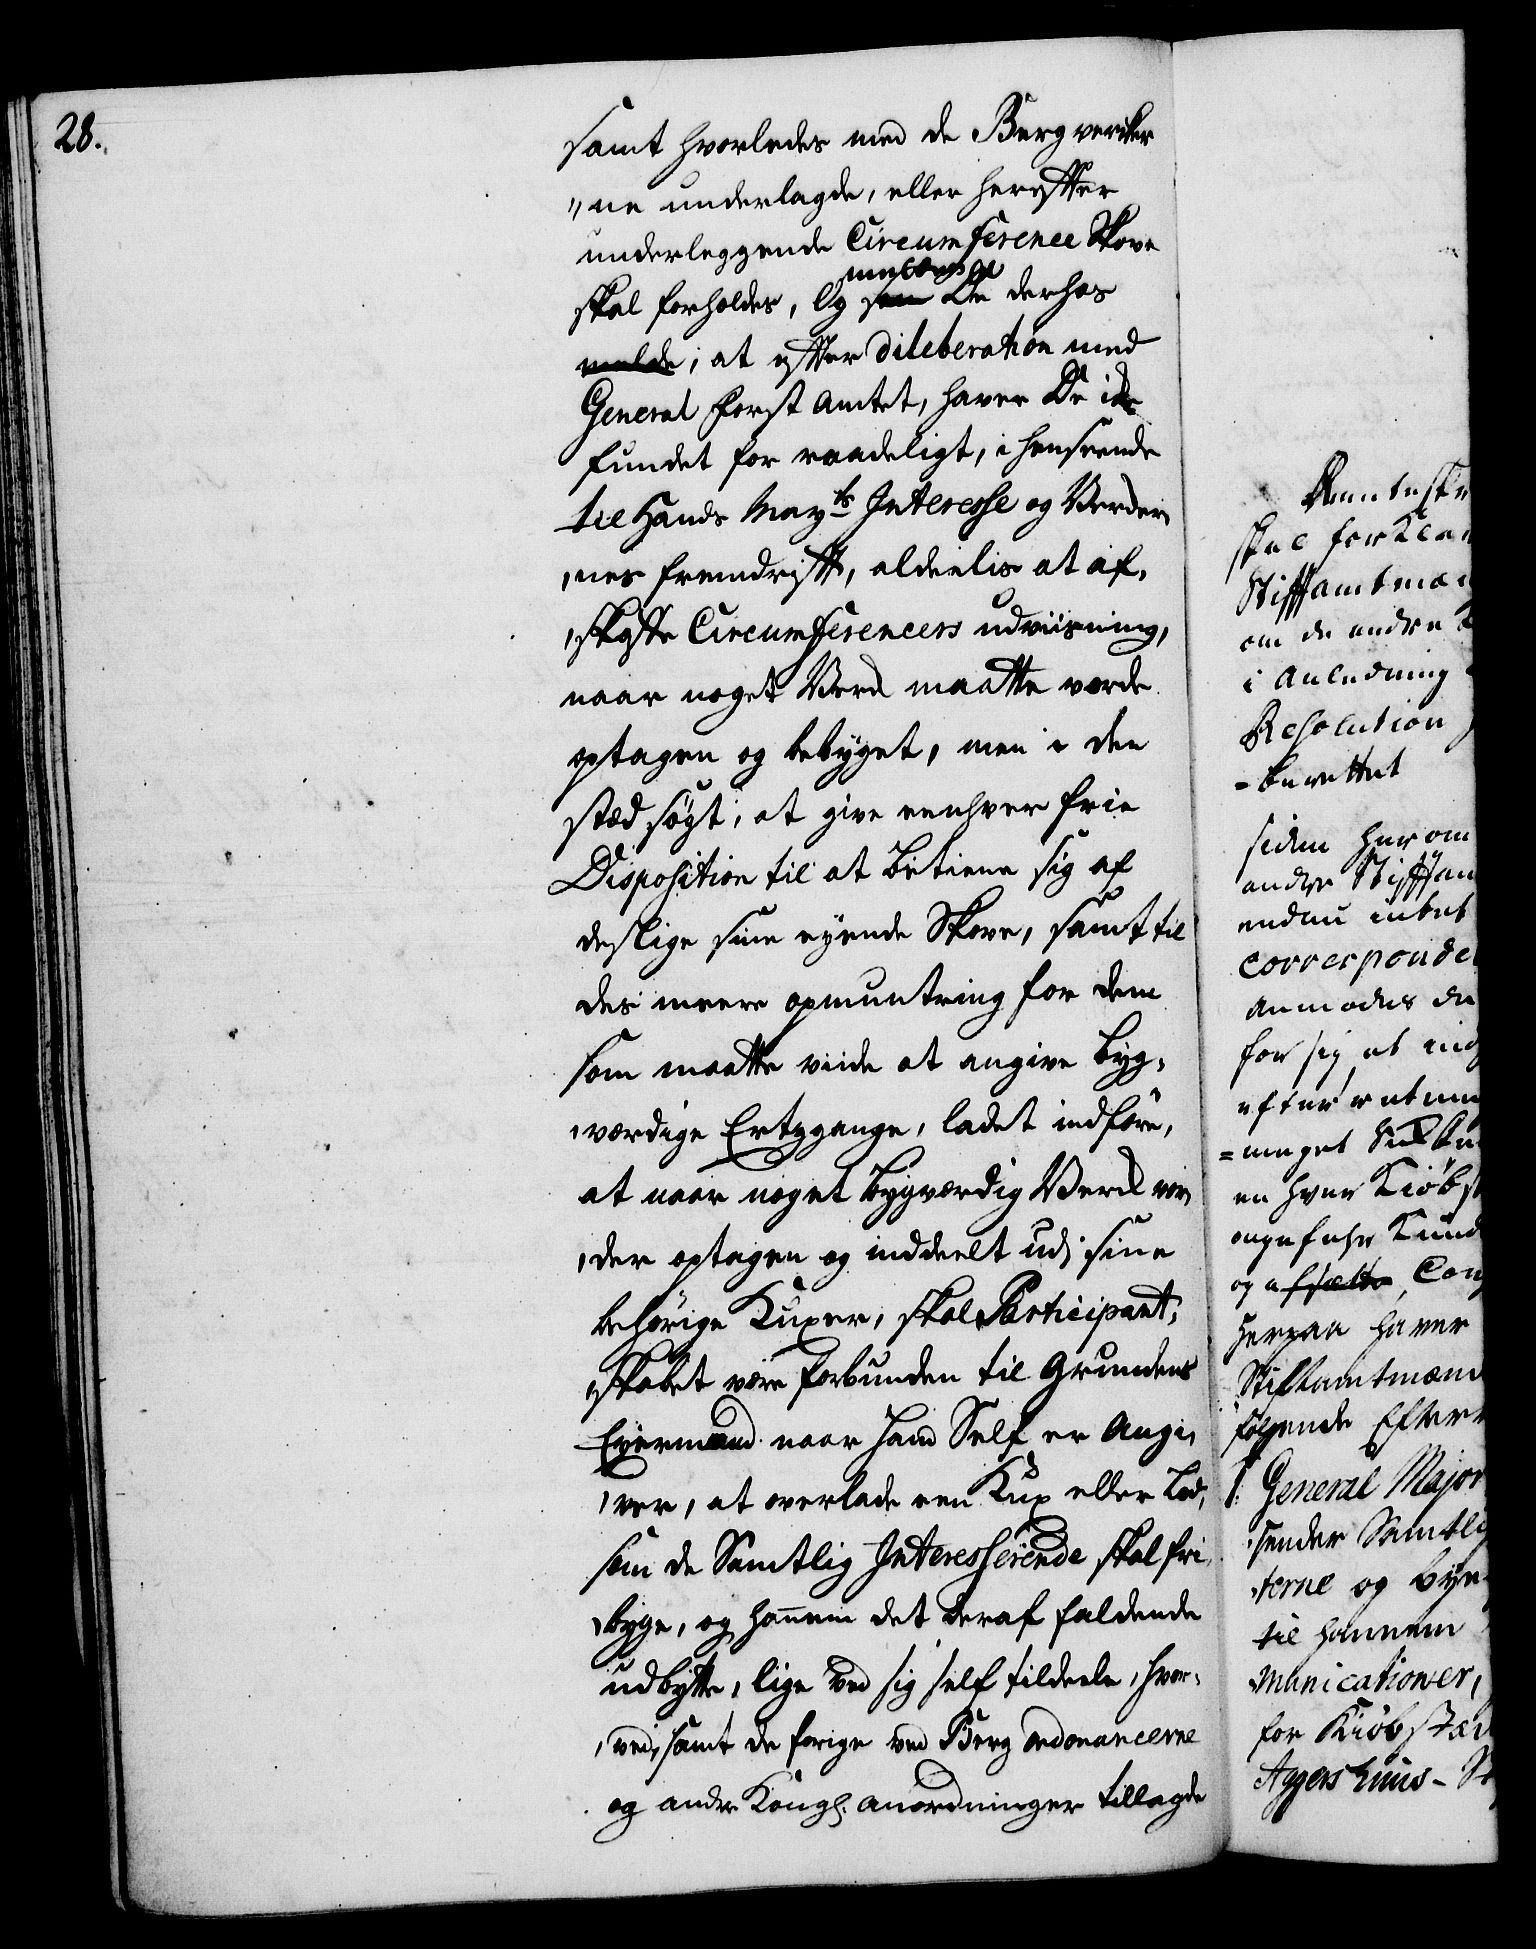 28.
samt hvorledes med de Bergverker
"ne underlagde, eller herefter
underleggende Circumference Skove
skal forholdes, Og som De derhos
melde, at efter dileberation med
General Forst Amtet, haver De icke
fundet for raadeligt, i henseende
til Hands Mayts Interesse og Verder,
,nes fremdrift, aldeelis at af,
,skaffe Circumferencers udviisning,
naar noget Verck maatte vorde
optagen og bebyget, men i den
stæd søgt, at give eenhver frie
Disposition til at betiene sig af
deslige sine eyende Skove, samt til
des meere opmuntring for dem
som maatte viide at angive byg,
,værdige Ertzgange, ladet indføre,
at naar noget bygværdig Verck vor,
,der optagen og inddeelt udj sine
behørige Kuxer, skal Participant,
,skabet være forbunden til Grundens
Eyermand naar hand Self er Angi,
,ver, at overlade een Kux eller Lod,
som de Samtlig Interesserende skal fri,
,byge, og hannem det deraf faldende
udbytte, lige ved sig self tildeele, hvor,
,ved, samt de forige ved Berg Ordonancerne
og andre Kongl. anordninger tillagde
skal forklar
Stiftamtmæn
om de andre
i Anledning
Resolution
=berettet
siden herom
andre Stiftam
endnu intet
Corresponde
anmodes de
for sig at ind
efterretning
en hver Kiøbst
ongefehr Kund
og afsætte, Con
Herpaa haver
Stiftamtmæn
følgende Efter
1. General Major
sender Samtlig
terne og bye
til hannem
municationer,
for Kiøbstæd
Aggershuus - St